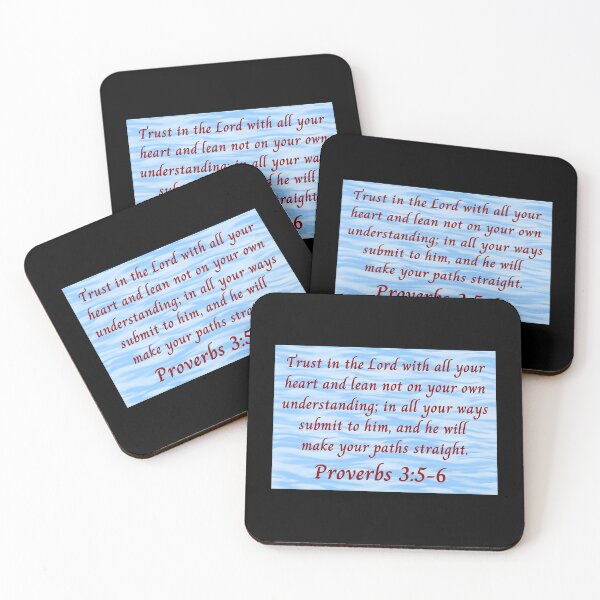 Trust in the Lord with all your
heart and lean not on your own
understanding; in all your
and he will
Trust in the Lord with all your
heart and lean not on your own
understanding; in all your ways
submit to him, and he will
make your paths straight.
Proverbs
Trust in the Lord with all your
heart and lean not on your own
understanding; in all your ways
submit to him, and he will
make your paths
Proverbs
Trust in the Lord with all your
heart and lean not on your own
understanding; in all your ways
submit to him, and he will
make your paths straight.
Proverbs 3:5-6